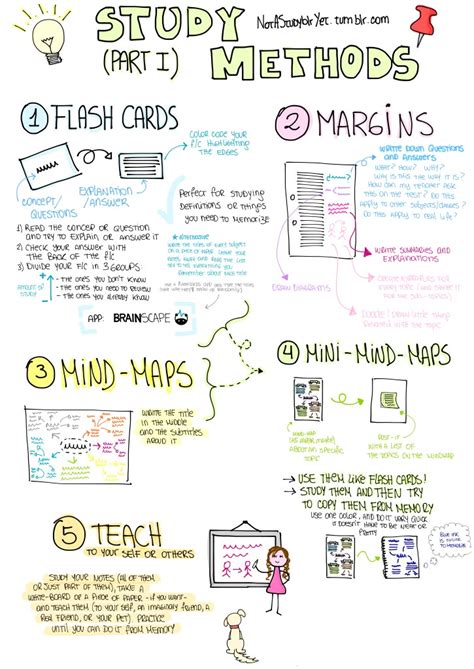 STUDY
(PART I) METHODS
NotAStudyblrYet.tumblr.com
① FLASH CARDS
COLOR CODE YOUR
F/C HIGHLIGHTING
THE EDGES
CONCEPT/
QUESTIONS
EXPLANATION
/ANSWER
PERFECT FOR STUDYING
DEFINITIONS OR THINGS
YOU NEED TO MEMORIZE
1) READ THE CONCEPT OR QUESTION
AND TRY TO EXPLAIN OR ANSWER IT
2) CHECK YOUR ANSWER WITH
THE BACK OF THE F/C
3) DIVIDE YOUR F/C IN 3 GROUPS
AMOUNT OF
STUDY
- THE ONES YOU DON'T KNOW
- THE ONES YOU NEED TO REVIEW
- THE ONES YOU ALREADY KNOW
APP: BRAINSCAPE
② MARGINS
WRITE DOWN QUESTIONS
AND ANSWERS
WHAT? HOW? WHY?
WHY IS THIS THE WAY IT IS?
HOW CAN MY TEACHER ASK
THIS ON THE TEST? DO THIS
APPLY TO OTHER SUBJECTS/CLASSES?
DO THIS APPLY TO REAL LIFE?
WRITE SUMMARIES AND
EXPLANATIONS
DRAW DIAGRAMS
③ MIND-MAPS
WRITE THE TITLE
IN THE MIDDLE
AND THE SUBTITLES
AROUND IT
④ MINI-MIND-MAPS
POST-IT
WITH A LIST OF
THE TOPICS IN THE MINDMAP
→ USE THEM LIKE FLASH CARDS!
→ STUDY THEM AND THEN TRY
TO COPY THEM FROM MEMORY
USE ONE COLOR, AND DO IT VERY QUICK
IT DOESN'T HAVE TO BE NEAT OR
PRETTY
BLUE INK
IS EASIER
TO MEMORIZE
⑤ TEACH
TO YOUR SELF OR OTHERS
STUDY YOUR NOTES (ALL OF THEM
OR JUST PART OF THEM), TAKE A
WHITE-BOARD OR A PIECE OF PAPER -IF YOU WANT-
AND TEACH THEM (TO YOUR SELF, AN IMAGINARY FRIEND, A
REAL FRIEND, OR YOUR PET). PRACTICE
UNTIL YOU CAN DO IT FROM MEMORY